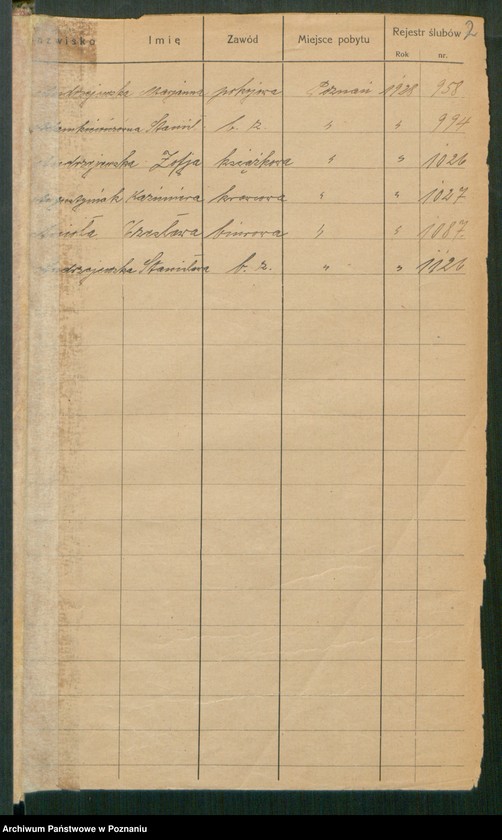 2
Nazwisko Imię Zawód Miejsce pobytu Rejestr ślubów
Rok nr.
Andrzejewska Marjanna pokojowa Poznań 1928 958
Stanisł. b. z. " " 994
Andrzejewska Zofja książkowa " " 1026
Kazimiera krawcowa " " 1027
Czesława biurowa " " 1087
Andrzejewska Stanisława b. z. " " 1126
Archiwum Państwowe w Poznaniu